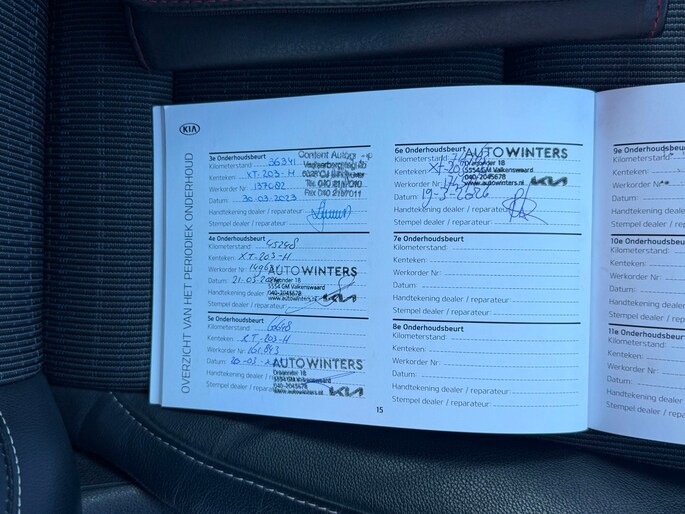 KIA
OVERZICHT VAN HET PERIODIEK ONDERHOUD
3e Onderhoudsbeurt
Kilometerstand: 36341
Kenteken: XT-203-H
Werkorder Nr: 137082
Datum: 30-03-2023
Handtekening dealer / reparateur:
Stempel dealer / reparateur:
Content Autogr
Tel. 040
Fax 040 2197011
4e Onderhoudsbeurt
Kilometerstand: 45248
Kenteken: XT-203-H
Werkorder Nr:
Datum: 21-03-
Handtekening dealer / reparateur:
Stempel dealer /
AUTOWINTERS
5554 GM Valkenswaard
040-2045678
www.autowinters.nl
KIA
5e Onderhoudsbeurt
Kilometerstand:
Kenteken: XT-203-H
Werkorder Nr: 161.843
Datum: 20-03-
Handtekening dealer /
Stempel dealer / reparateur:
AUTOWINTERS
Dragonder 18
5554 GM Valkenswaard
040-2045678
www.autowinters.nl
KIA
6e Onderhoudsbeurt
Kilometerstand
Kenteken: XT-203
Werkorder Nr:
Datum: 19-3-2026
Handtekening dealer / reparateur:
Stempel dealer / reparateur:
AUTOWINTERS
Dragonder 18
5554 GM Valkenswaard
040-2045678
www.autowinters.nl
KIA
7e Onderhoudsbeurt
Kilometerstand:
Kenteken:
Werkorder Nr:
Datum:
Handtekening dealer / reparateur:
Stempel dealer / reparateur:
8e Onderhoudsbeurt
Kilometerstand:
Kenteken:
Werkorder Nr:
Datum:
Handtekening dealer / reparateur:
Stempel dealer / reparateur:
15
9e Onderhoudsbeur
Kilometerstand
Kenteken:
Werkorder Nr
Datum:
Handtekening deale
Stempel dealer / re
10e Onderhoudsbeur
Kilometerstand:
Kenteken:
Werkorder Nr:
Datum:
Handtekening deale
Stempel dealer / re
11e Onderhoudsbeu
Kilometerstand:
Kenteken:
Werkorder Nr:
Datum:
Handtekening dea
Stempel dealer / r